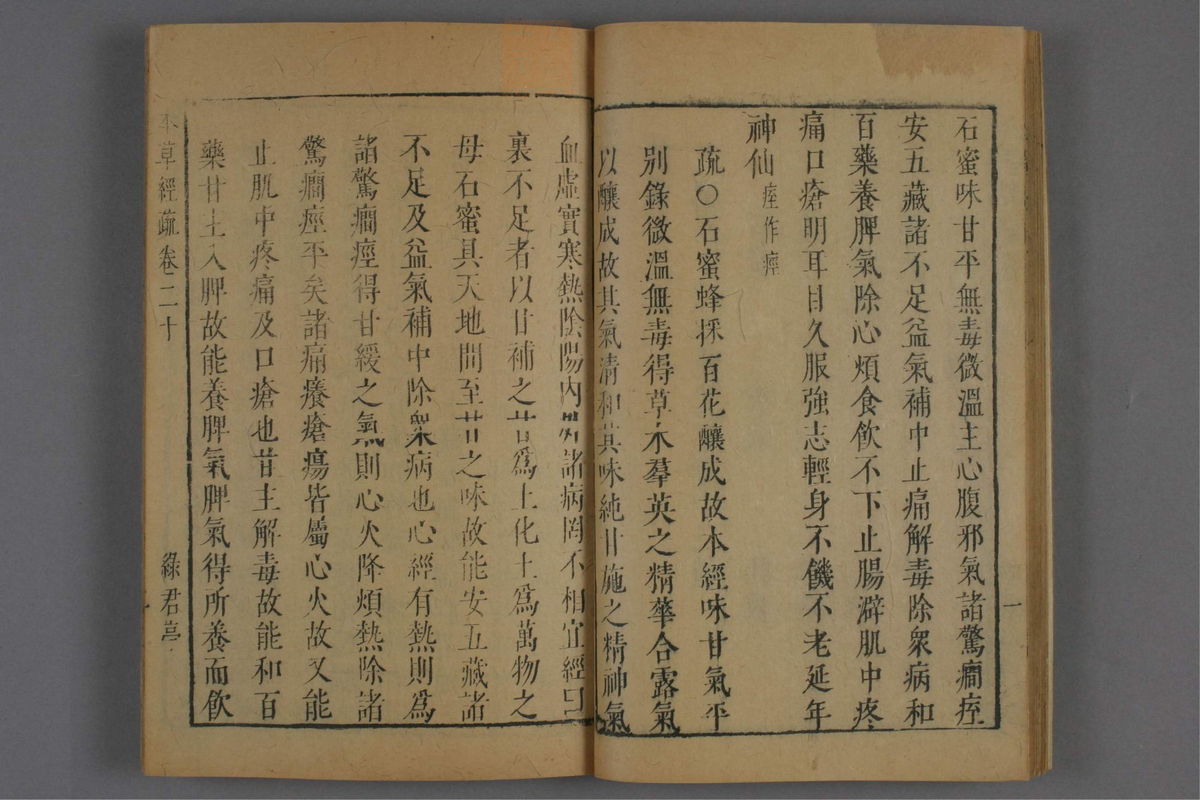 石蜜味甘平無毒微溫主心腹邪氣諸驚癎痓
安五藏諸不足益氣補中止痛解毒除衆病和
百藥養脾氣除心煩食飮不下止腸澼肌中疼
痛口瘡明耳目久服強志輕身不饑不老延年
神仙痓作痙
疏○石蜜蜂採百花釀成故本經味甘氣平
別錄微溫無毒得草木羣英之精華合露氣
以釀成故其氣清和其味純甘施之精神氣
血虛實寒熱陰陽內外諸病罔不相宜經曰
裏不足者以甘補之甘爲土化土爲萬物之
母石蜜具天地間至甘之味故能安五藏諸
不足及益氣補中除衆病也心經有熱則爲
諸驚癎痙得甘緩之氣則心火降煩熱除諸
驚癎痙平矣諸痛癢瘡瘍皆屬心火故又能
止肌中疼痛及口瘡也甘主解毒故能和百
藥甘土入脾故能養脾氣脾氣得所養而飮
本草經疏卷二十 綠君亭
一